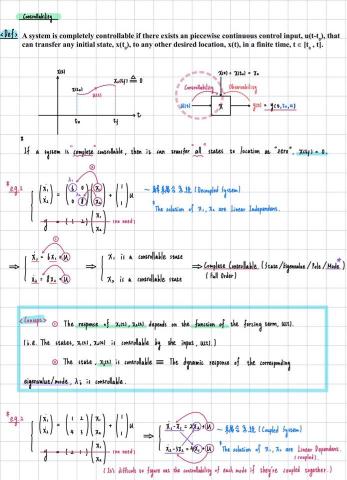 Controllability
<Def> A system is completely controllable if there exists an piecewise continuous control input, u(t-t₀), that
can transfer any initial state, x(t₀), to any other desired location, x(t), in a finite time, t ∈ [t₀ , t].
x(t)
x(t₀)
x(tf) ≜ 0
u(t)
t₀
tf
t
x(0) = x(t₀) = x₀
Controllability
Observability
u(t)
x
* If a system is "complete" controllable, then it can transfer "all" states to location as "zero", x(tf) = 0.
* e.g.1
~ 解耦合系統 (Decoupled System)
* The solution of x₁, x₂ are Linear Independent.
(no need)
⇒ x₁ is a controllable state
x₂ is a controllable state
⇒ Complete Controllable (State / Eigenvalue / Pole / Mode)
(Full Order)
<Concept> ① The response of x₁(t), x₂(t) depends on the function of the forcing term, u(t).
(i.e. The states, x₁(t), x₂(t) is controllable by the input, u(t).)
② The state, x(t), is controllable ≡ The dynamic response of the corresponding
eigenvalue/mode, λᵢ is controllable.
* e.g.2
(no need)
~ 耦合系統 (Coupled System)
* The solution of x₁, x₂ are Linear Dependent.
(coupled)
(It's difficult to figure out the controllability of each mode if they're coupled together.)